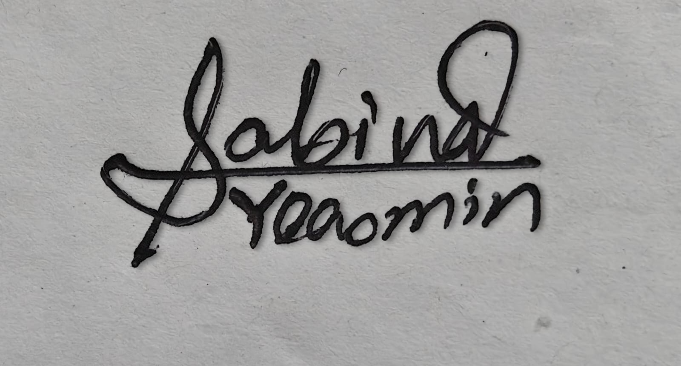 Sabina
Yeaomin